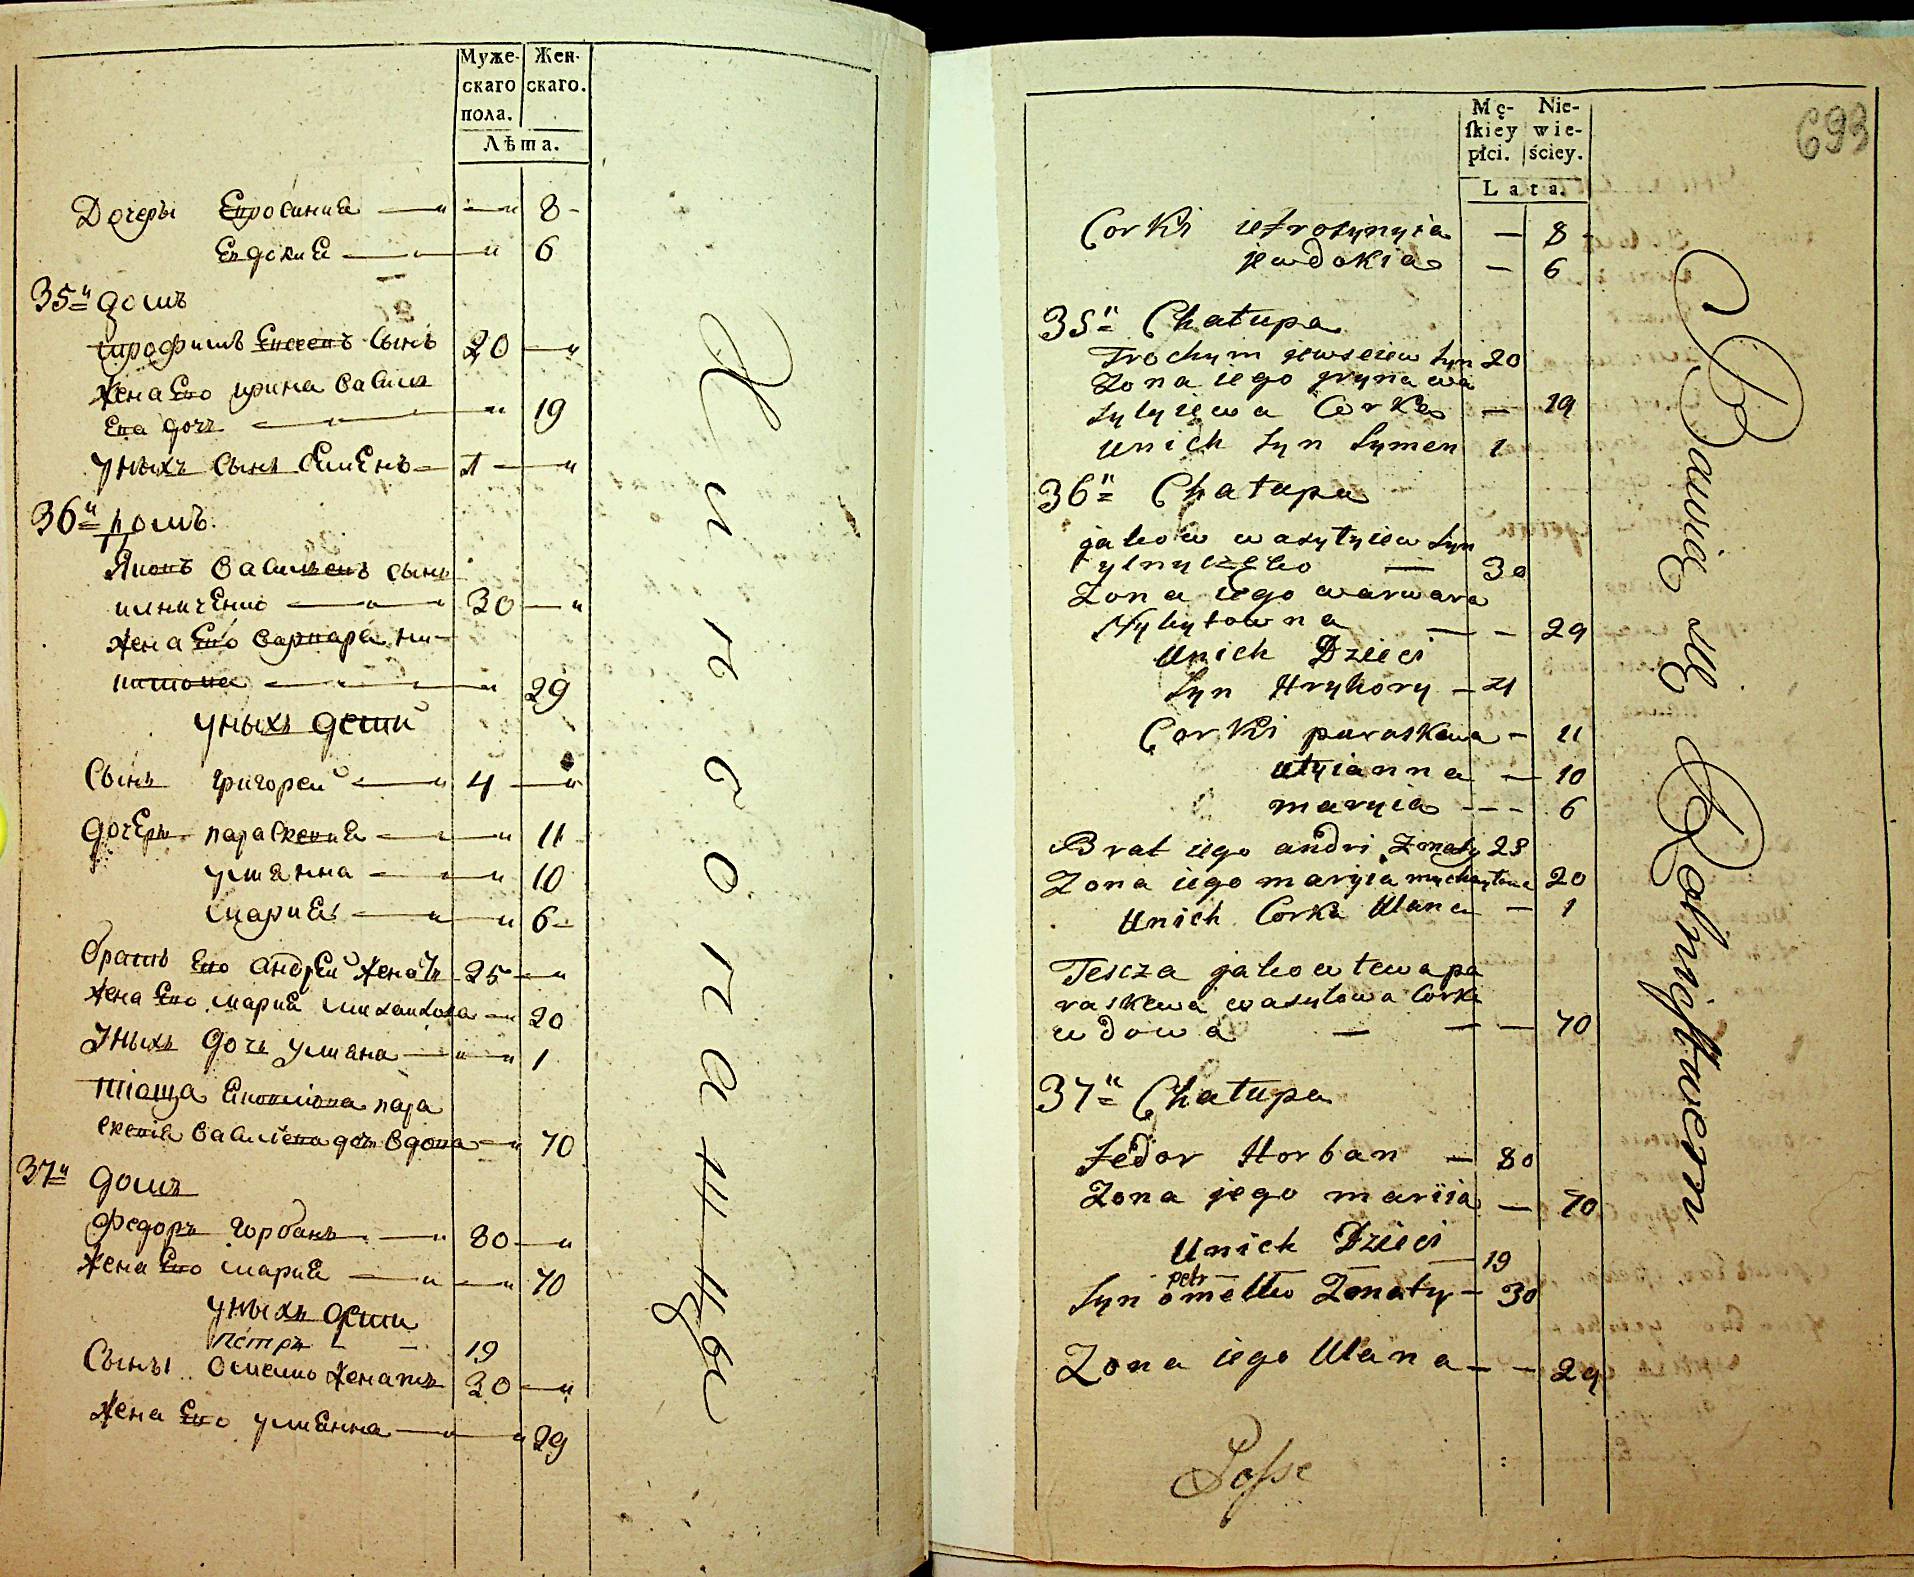 Муже-
скаго
пола.
Жен-
скаго.
Лѣта.
Дочеры Епросиниа — 8
Евдокиа — 6
35й домъ
трофимъ Евсеевъ Сынъ 20
жена Его ирина васил
Ева дочь — 19
Уныхъ Сынъ Семенъ — 1
36й домъ
Яковъ василевъ сынъ
илниченко — 30
жена Его варвара ни-
китова — 29
Уныхъ дети
Сынъ григорей — 4
дочеры параскевиа — 11
улианна — 10
мариа — 6
братъ Его андрей женатъ 25
жена Его мариа михайлова — 20
Уныхъ дочь улиана — 1
тюща Яковлюва пара
скевиа василева дочь вдова — 70
37й домъ
федоръ горбанъ — 80
жена Его мариа — 70
Уныхъ дети
петръ — 19
Сыны омелко женатъ 30
жена Его улианна — 29
Житсопатцы
Mę-
ſkiey
płci.
Nie-
wie-
ściey.
Lata.
693
Corki iefrosynyia — 8
jewdokia — 6
35" Chatupa
Trochym jewseiew syn 20
Zona iego jryna wa
sylyiewa Corka — 19
unich syn Symen 1
36" Chatupa
jakow wasylyiew syn
ylnyczęko — 30
Zona iego warwara
Nykytowna — 29
Unich Dzieci
Syn Hryhory — 4
Corki paraskewa — 11
ulyianna — 10
maryia — 6
Brat iego andri Zonaty 25
Zona iego maryia mychaylowa 20
Unich Corka Ulana — 1
Tescza jakowlewa pa
raskewa wasylowa Corka
wdowa — 70
37" Chatupa
Fedor Horban — 80
Zona jego mariia — 70
Unich Dzieci
petr — 19
Syn omelko Zonaty — 30
Zona iego Ulana — 29
Bawię się Rolnictwem